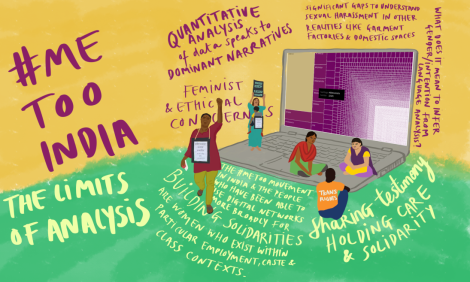 #ME
TOO
INDIA
THE LIMITS
OF ANALYSIS
QUANTITATIVE
ANALYSIS
of data speaks to
DOMINANT NARRATIVES
FEMINIST
& ETHICAL
CONCERNS
SIGNIFICANT GAPS TO UNDERSTAND
SEXUAL HARASSMENT IN OTHER
REALITIES LIKE GARMENT
FACTORIES & DOMESTIC SPACES
WHAT DOES IT MEAN TO INFER
GENDER/INTENTION FROM
LANGUAGE ANALYSIS?
THE #METOO MOVEMENT
IN INDIA & THE PEOPLE
WHO HAVE BEEN ABLE TO
USE DIGITAL NETWORKS
MORE BROADLY FOR
BUILDING SOLIDARITIES
ARE WOMEN WHO EXIST WITHIN
PARTICULAR EMPLOYMENT, CASTE &
CLASS CONTEXTS.
TRANS
RIGHTS
Sharing testimony
HOLDING CARE
& SOLIDARITY